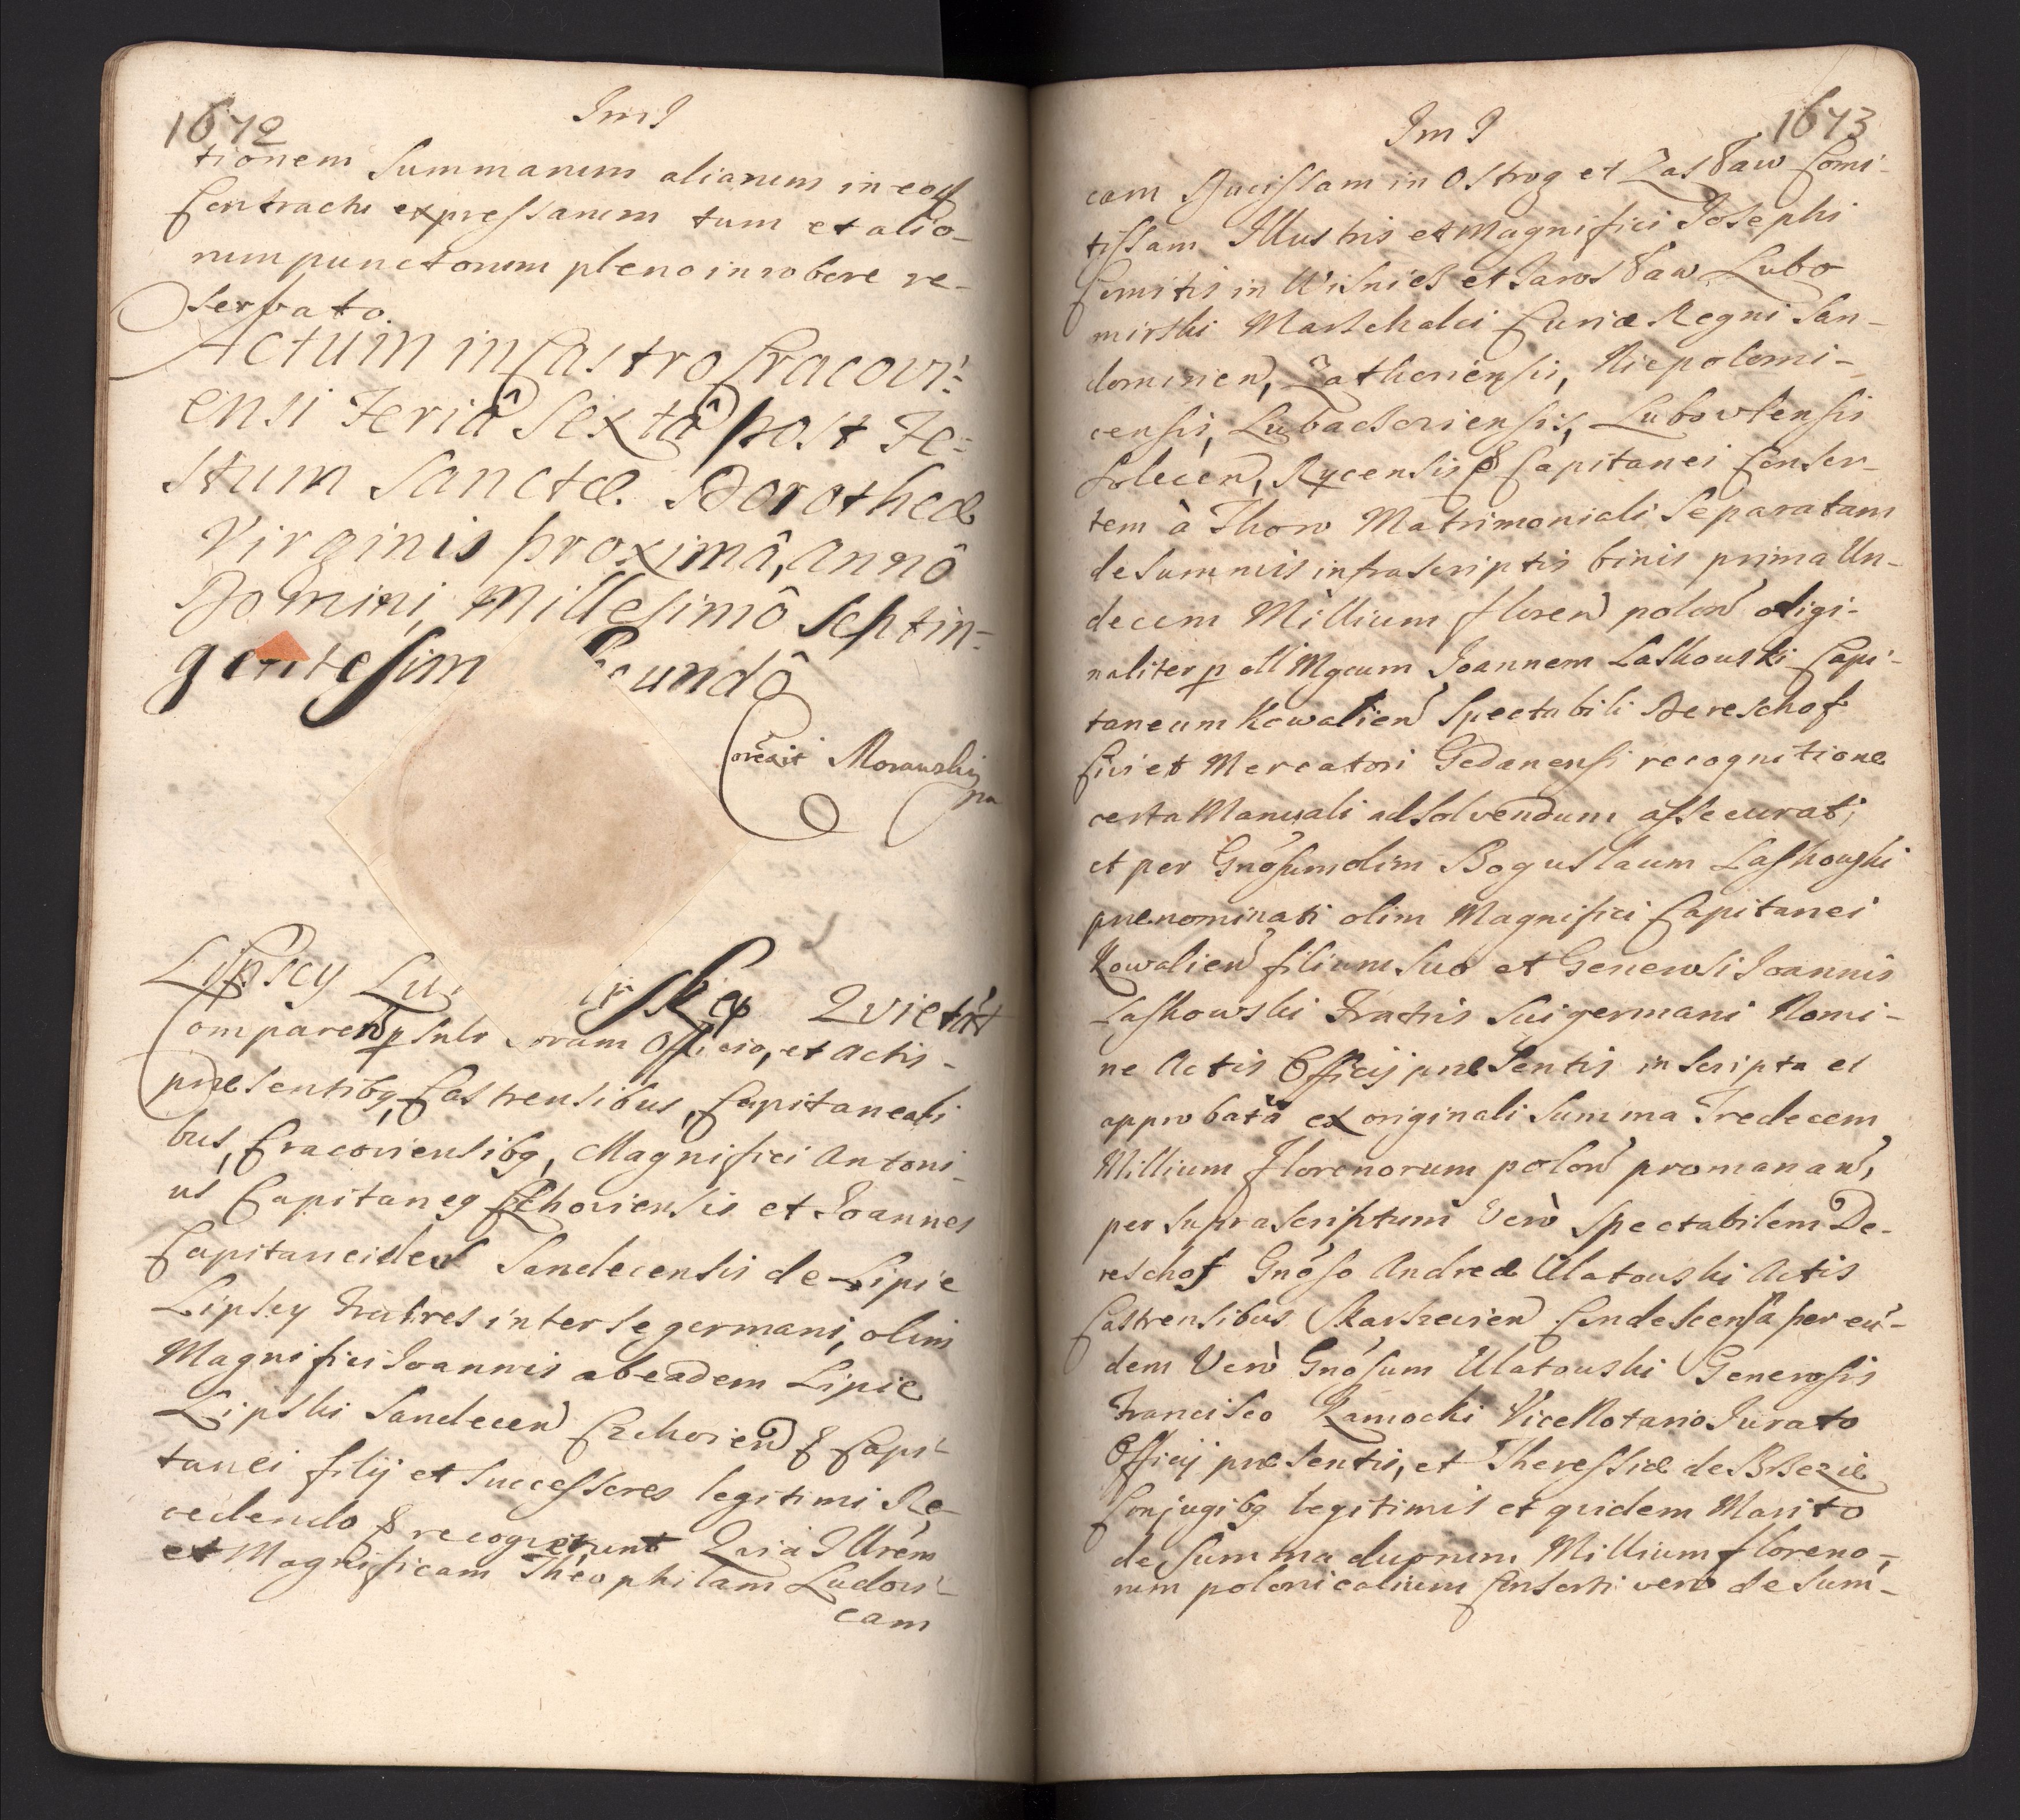 1672
ImI
tionem Summarum aliarum in eod
Contractu expressarum tum et alio-
rum punctorum pleno in robore re-
servato.
Actum in Castro Cracovi-
ensi Feriâ Sextâ post Fe-
stum Sanctæ Dorotheæ
Virginis proximâ, Annô
Domini, Millesimô Septin-
gentesim cundô
Corexit Morawski
Lipscy Lu skey Quietat
Comparen p suls oram Officio, et Actis
præsentibg, Castrensibus, Capitaneali
bus, Cracoviensibg, Magnifici Antoni-
us Capitaneg Czchoviensis et Joannes
Capitaneides Sandecensis de Lipie
Lipscy Fratres inter se germani, olim
Magnifici Joannis ab eadem Lipie
Lipski Sandecen Czchovien & Capi-
tanei filij et Successores legitimi Re-
cedendo & recognverunt Quia Illrem
et Magnificam Theophilam Ludovi-
cam
1673
Im I
cam Ducissam in Ostrog et Zasław Comi-
tissam Illustris et Magnifici Josephi
Comitis in Wisnicz et Jarosław Lubo
mirski Marschalci Curiæ Regni San-
domirien, Zathoriensis, Niepolomi-
censis, Lubaczoviensis, Lubovlensis
Solecen, Rycensis & Capitanei Conser-
tem à Thoro Matrimoniali Separatam
de Summis infrascriptis binis prima Un-
decem Millium floren polon oligi-
naliter p olI Mgcum Joannem Laskowski Capi-
taneum Kowalien Spectabili Dereschof
Civi et Mercatori Gedanensi recognitione
certa Manuali ad Solvendum assecurati,
et per Gnosum olim Boguslaum Laskowski
prænominati olim Magnifici Capitanei
Kowalien filium Suo et Generosi Joannis
Laskowski Fratris Sui germani Nomi-
ne Actis Officij præsentis inscripta et
approbatâ ex originali Summa Tredecem
Millium Florenorum polon promanan,
per Suprascriptum Verò Spectabilem De-
reschof Gnoso Andreæ Ulatowski Actis
Castrensibus Skarszevien Condescensâ per eu-
dem Verò Gnosum Ulatowski Generosis
Francisco Zamocki ViceNotario Jurato
Officij præsentis, et Theressiæ de Brzezie
Conjugibg legitimis et quidem Marito
de Summa duorum Millium floreno-
rum polonicalium Consorti vero de Sum-